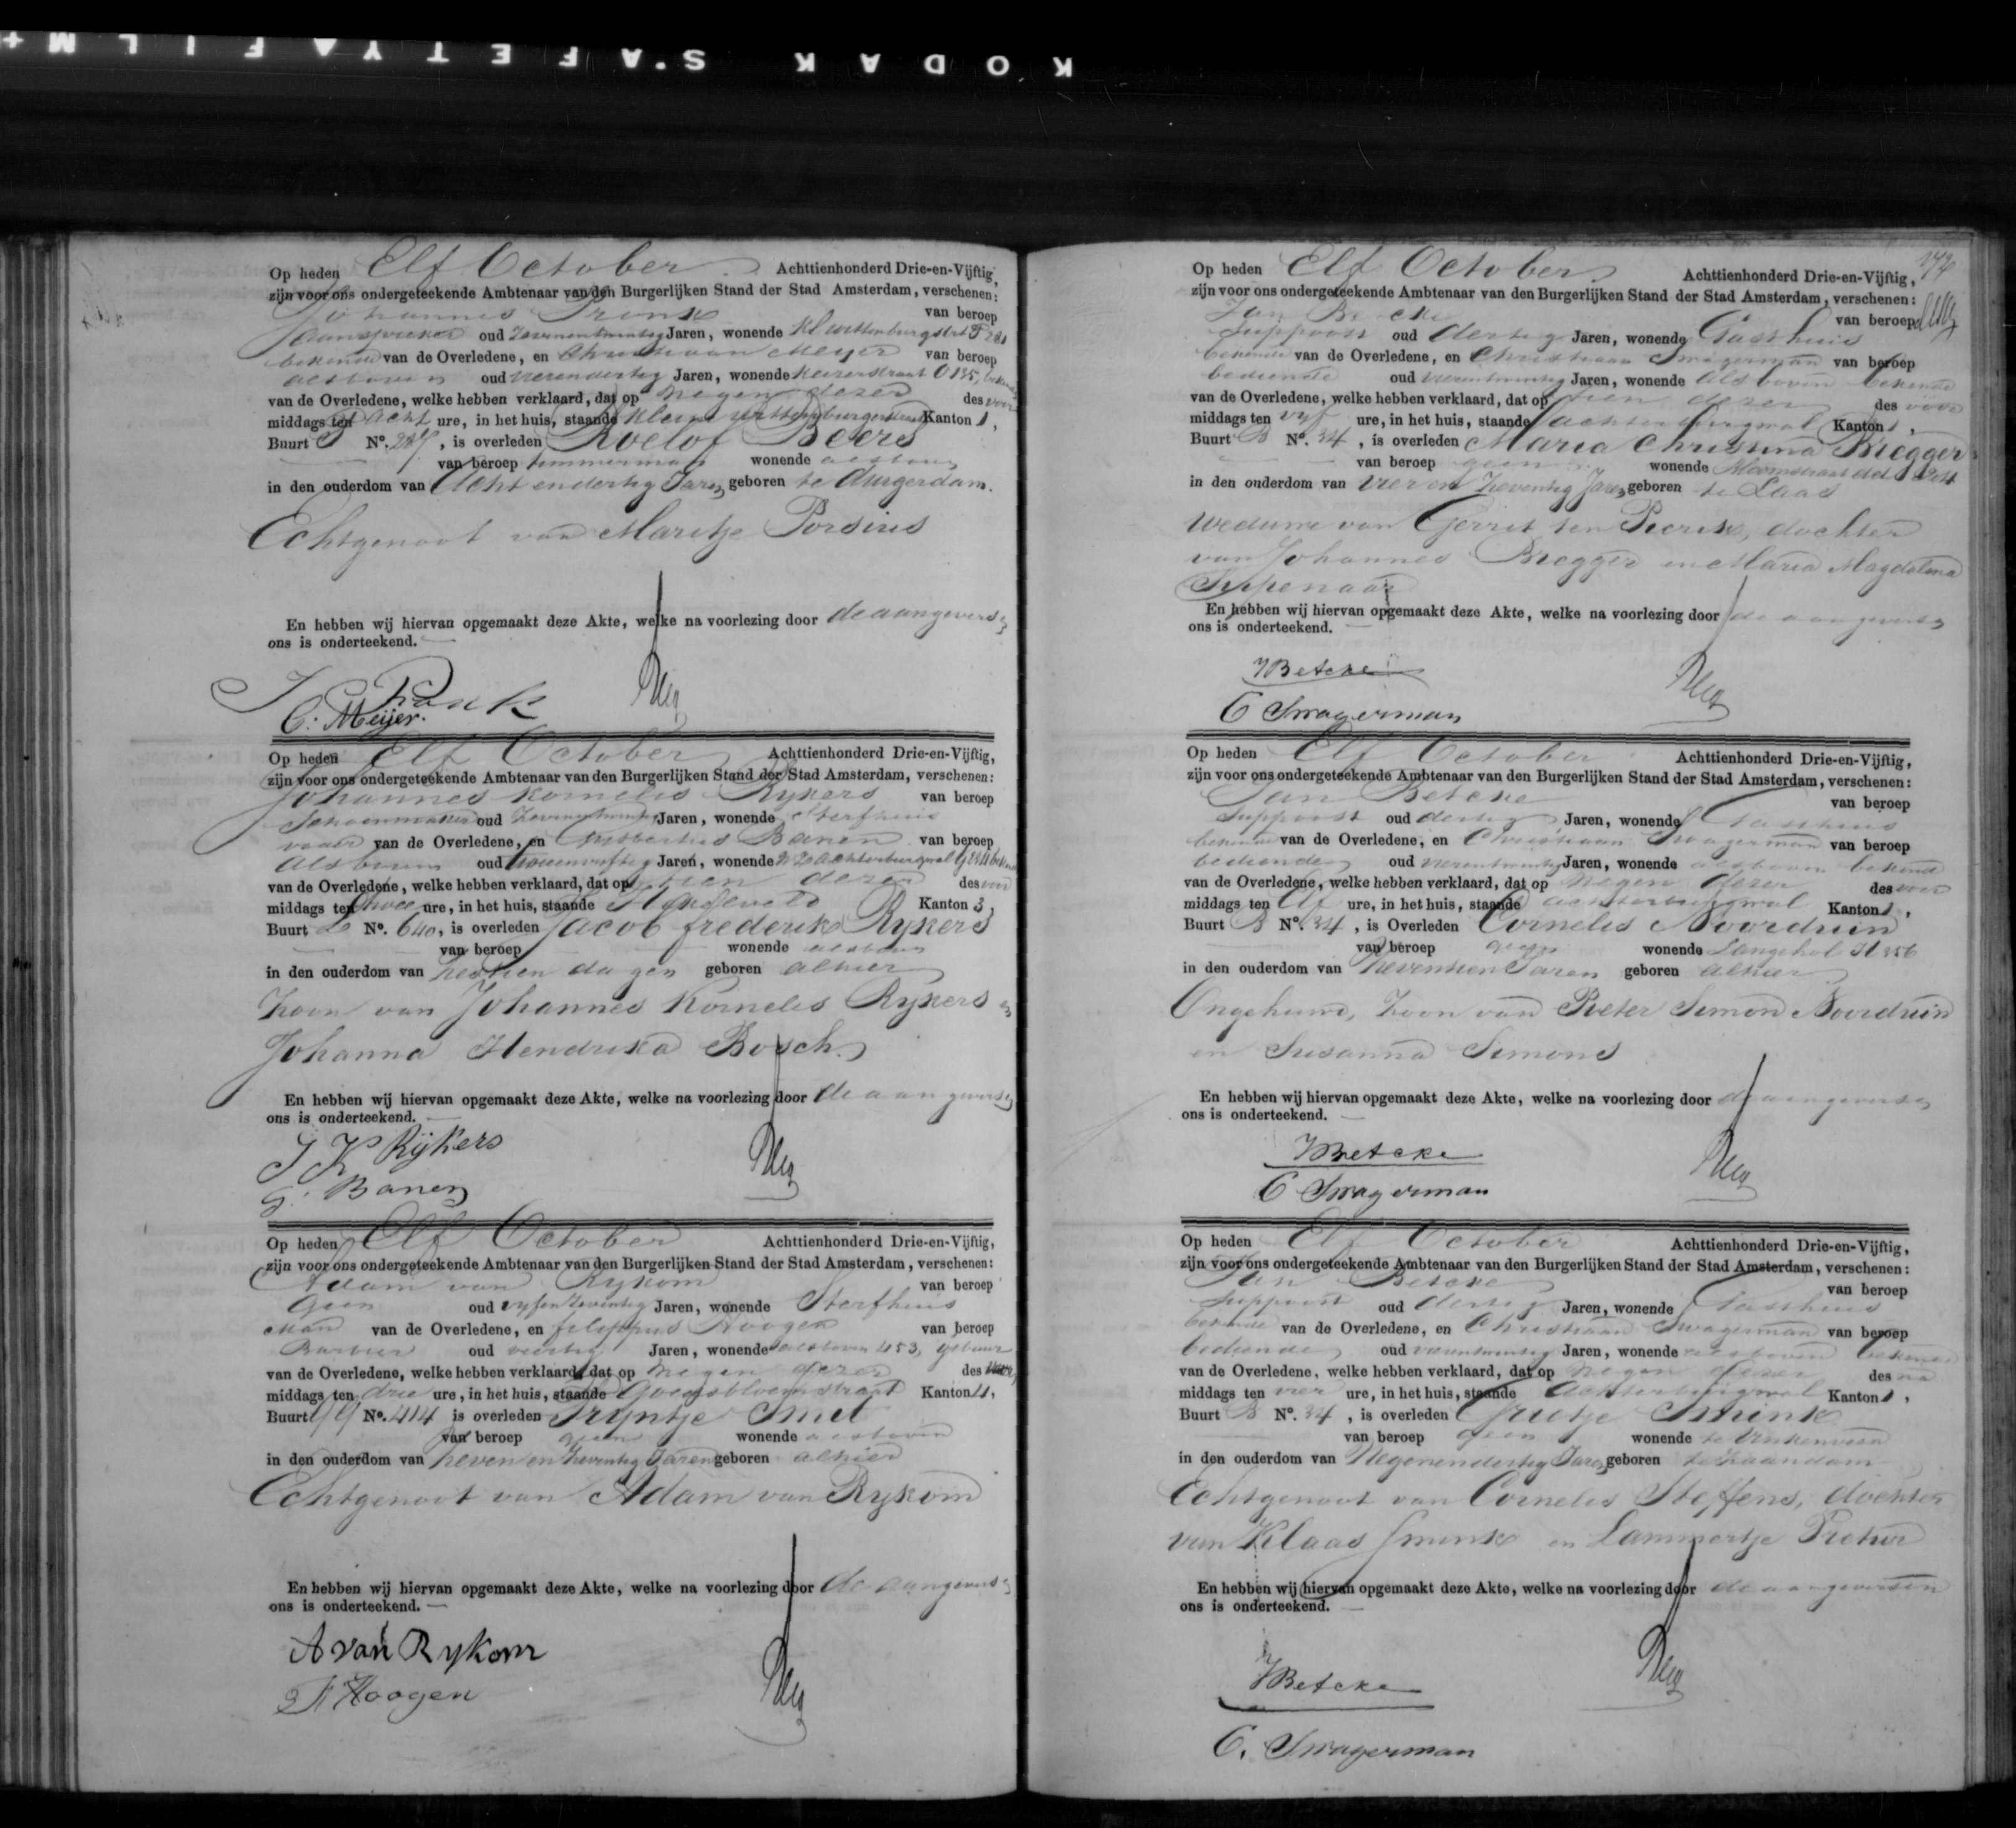 KODAK SAFETY FILM
Op heden Elf October Achttienhonderd Drie-en-Vijftig,
zijn voor ons ondergeteekende Ambtenaar van den Burgerlijken Stand der Stad Amsterdam, verschenen:
Johannes van beroep
Aanspreker oud Zevenentwintig Jaren, wonende
bekende van de Overledene, en Christiaan Meijer van beroep
als boven oud vierendertig Jaren, wonende Keizerstraat O 135, bekende
van de Overledene, welke hebben verklaard, dat op negen dezer des voor
middags ten acht ure, in het huis, staande Kleine Wittenburgerstraat Kanton 1,
Buurt No. , is overleden Roelof Beers
van beroep timmerman wonende als boven
in den ouderdom van Acht en dertig Jaren geboren te Durgerdam.
Echtgenoot van Maritje Porsius
En hebben wij hiervan opgemaakt deze Akte, welke na voorlezing door de aangevers en
ons is onderteekend.
C. Meijer.
Op heden Elf October Achttienhonderd Drie-en-Vijftig,
zijn voor ons ondergeteekende Ambtenaar van den Burgerlijken Stand der Stad Amsterdam, verschenen:
Johannes Kornelis Rykers van beroep
Schoenmaker oud Zevenentwintig Jaren, wonende Sterfhuis
vader van de Overledene, en Gysbertus Banen van beroep
als boven oud Jaren, wonende Achterburgwal
van de Overledene, welke hebben verklaard, dat op tien dezer des voor
middags ten twee ure, in het huis, staande Kanton 3,
Buurt No. 640, is overleden Jacob frederik Rykers
van beroep wonende als boven
in den ouderdom van zestien dagen geboren alhier
Zoon van Johannes Kornelis Rykers en
Johanna Hendrika Bosch.
En hebben wij hiervan opgemaakt deze Akte, welke na voorlezing door de aangevers en
ons is onderteekend.
J K Rijkers
G. Banen
Op heden Elf October Achttienhonderd Drie-en-Vijftig,
zijn voor ons ondergeteekende Ambtenaar van den Burgerlijken Stand der Stad Amsterdam, verschenen:
Adam van Rykom van beroep
Geen oud vyfenzeventig Jaren, wonende Sterfhuis
Man van de Overledene, en filippus Hoogen van beroep
Barbier oud veertig Jaren, wonende als boven 453, gebuur
van de Overledene, welke hebben verklaard, dat op negen dezer des
middags ten drie ure, in het huis, staande Goudsbloemstraat Kanton 4,
Buurt YY No. 414 is overleden Tryntje Smet
van beroep geen wonende als boven
in den ouderdom van zeven en zeventig Jaren geboren alhier
Echtgenoot van Adam van Rykom
En hebben wij hiervan opgemaakt deze Akte, welke na voorlezing door de aangevers en
ons is onderteekend.
A van Rykom
F Hoogen
Op heden Elf October Achttienhonderd Drie-en-Vijftig,
zijn voor ons ondergeteekende Ambtenaar van den Burgerlijken Stand der Stad Amsterdam, verschenen:
Jan Betcke van beroep
Suppoost oud dertig Jaren, wonende Gasthuis
bekende van de Overledene, en Christiaan Swagerman van beroep
bediende oud vierentwintig Jaren, wonende als boven bekende
van de Overledene, welke hebben verklaard, dat op tien dezer des voor
middags ten vyf ure, in het huis, staande achterburgwal Kanton 1,
Buurt B No. 34, is overleden Maria Christina Bregger
van beroep geen wonende
in den ouderdom van vier en zeventig Jaren geboren te Laas
Weduwe van Gerrit ten Pierik, dochter
van Johannes Bregger en Maria Magdalena
Sippenaar
En hebben wij hiervan opgemaakt deze Akte, welke na voorlezing door de aangevers en
ons is onderteekend.
J Betcke
C Swagerman
Op heden Elf October Achttienhonderd Drie-en-Vijftig,
zijn voor ons ondergeteekende Ambtenaar van den Burgerlijken Stand der Stad Amsterdam, verschenen:
Jan Betcke van beroep
Suppoost oud dertig Jaren, wonende Gasthuis
bekende van de Overledene, en Christiaan Swagerman van beroep
bediende oud vierentwintig Jaren, wonende als boven bekende
van de Overledene, welke hebben verklaard, dat op negen dezer des voor
middags ten Elf ure, in het huis, staande achterburgwal Kanton 1,
Buurt B No. 34, is Overleden Cornelis Noordruin
van beroep geen wonende
in den ouderdom van Zeventien Jaren geboren alhier
Ongehuwd, Zoon van Pieter Simon Noordruin
en Susanna Simons
En hebben wij hiervan opgemaakt deze Akte, welke na voorlezing door de aangevers en
ons is onderteekend.
J Betcke
C Swagerman
Op heden Elf October Achttienhonderd Drie-en-Vijftig,
zijn voor ons ondergeteekende Ambtenaar van den Burgerlijken Stand der Stad Amsterdam, verschenen:
Jan Betcke van beroep
Suppoost oud dertig Jaren, wonende Gasthuis
bekende van de Overledene, en Christiaan Swagerman van beroep
bediende oud vierentwintig Jaren, wonende als boven bekende
van de Overledene, welke hebben verklaard, dat op negen dezer des na
middags ten vier ure, in het huis, staande achterburgwal Kanton 1,
Buurt B No. 34, is overleden Grietje Smink
van beroep geen wonende te Vinkeveen
in den ouderdom van Negenendertig Jaren geboren te Zaandam
Echtgenoot van Cornelis Steffens, dochter
van Klaas Smink en Lammertje
En hebben wij hiervan opgemaakt deze Akte, welke na voorlezing door de aangevers en
ons is onderteekend.
J Betcke
C. Swagerman